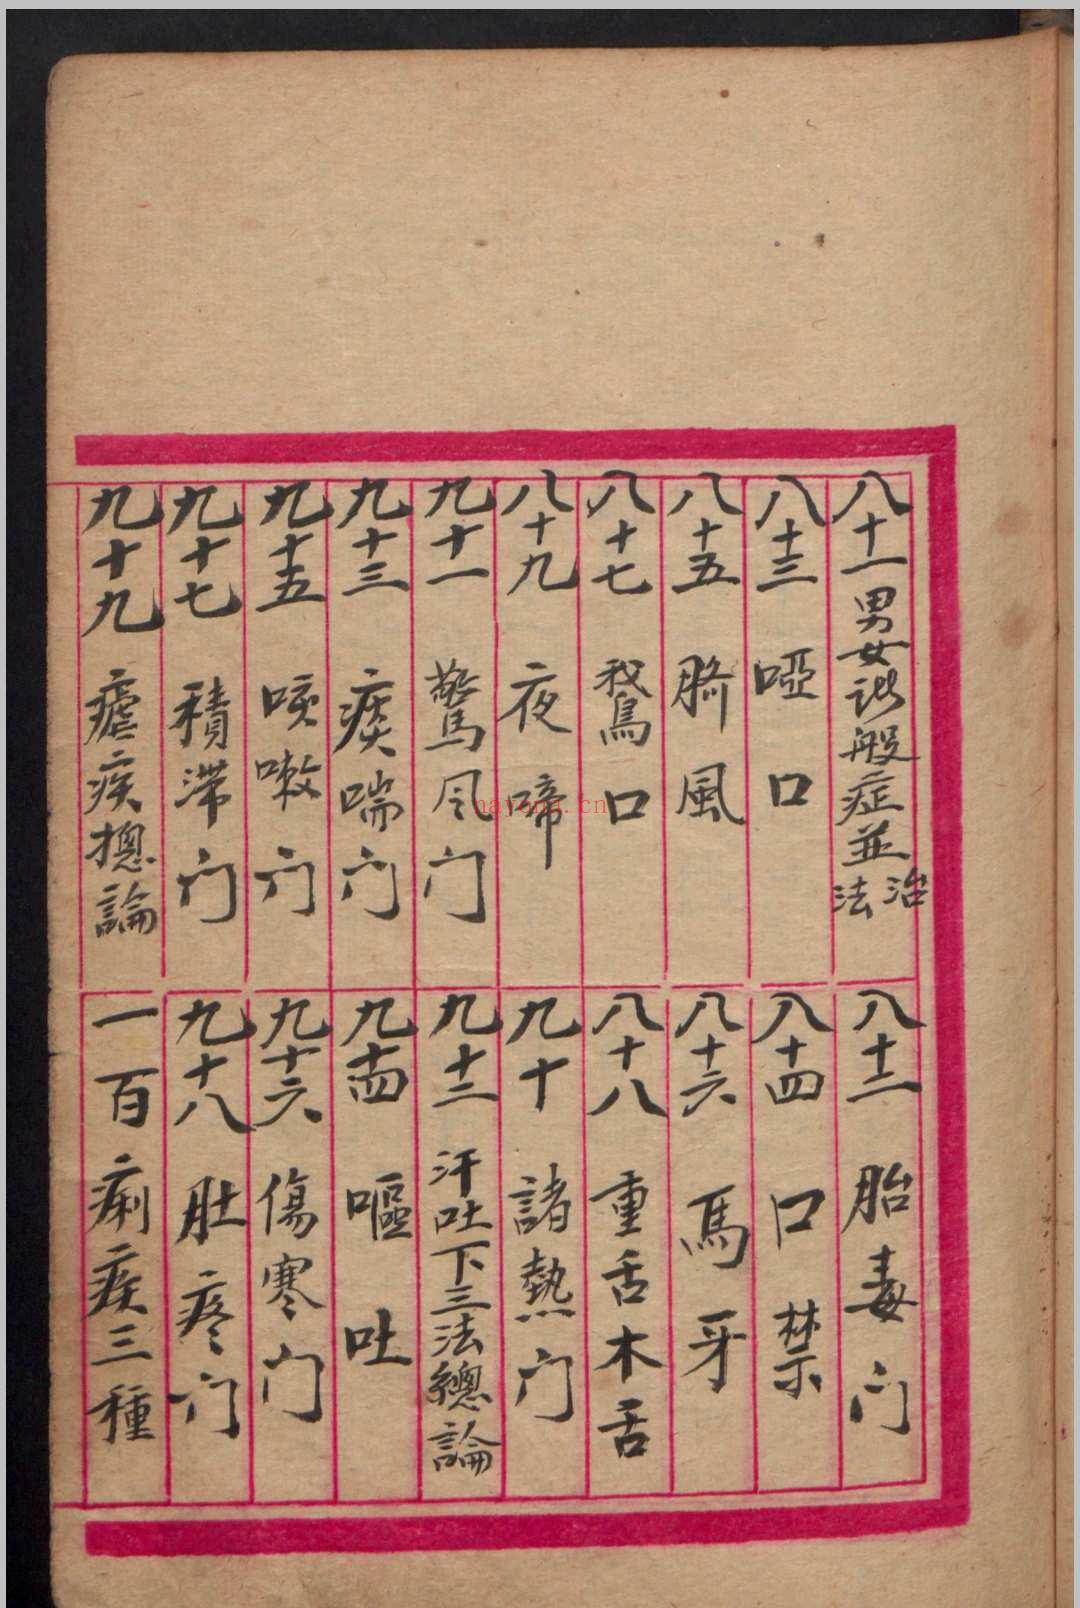 八十一 男女般症並治法
八十二 胎毒门
八十三 啞口
八十四 口禁
八十五 臍風
八十六 馬牙
八十七 鵞口
八十八 重舌木舌
八十九 夜啼
九十 諸熱门
九十一 驚风门
九十二 汗吐下三法總論
九十三 痰喘门
九十四 嘔吐
九十五 咳嗽门
九十六 傷寒门
九十七 積滯门
九十八 肚疼门
九十九 瘧疾摠論
一百 痢疾三種